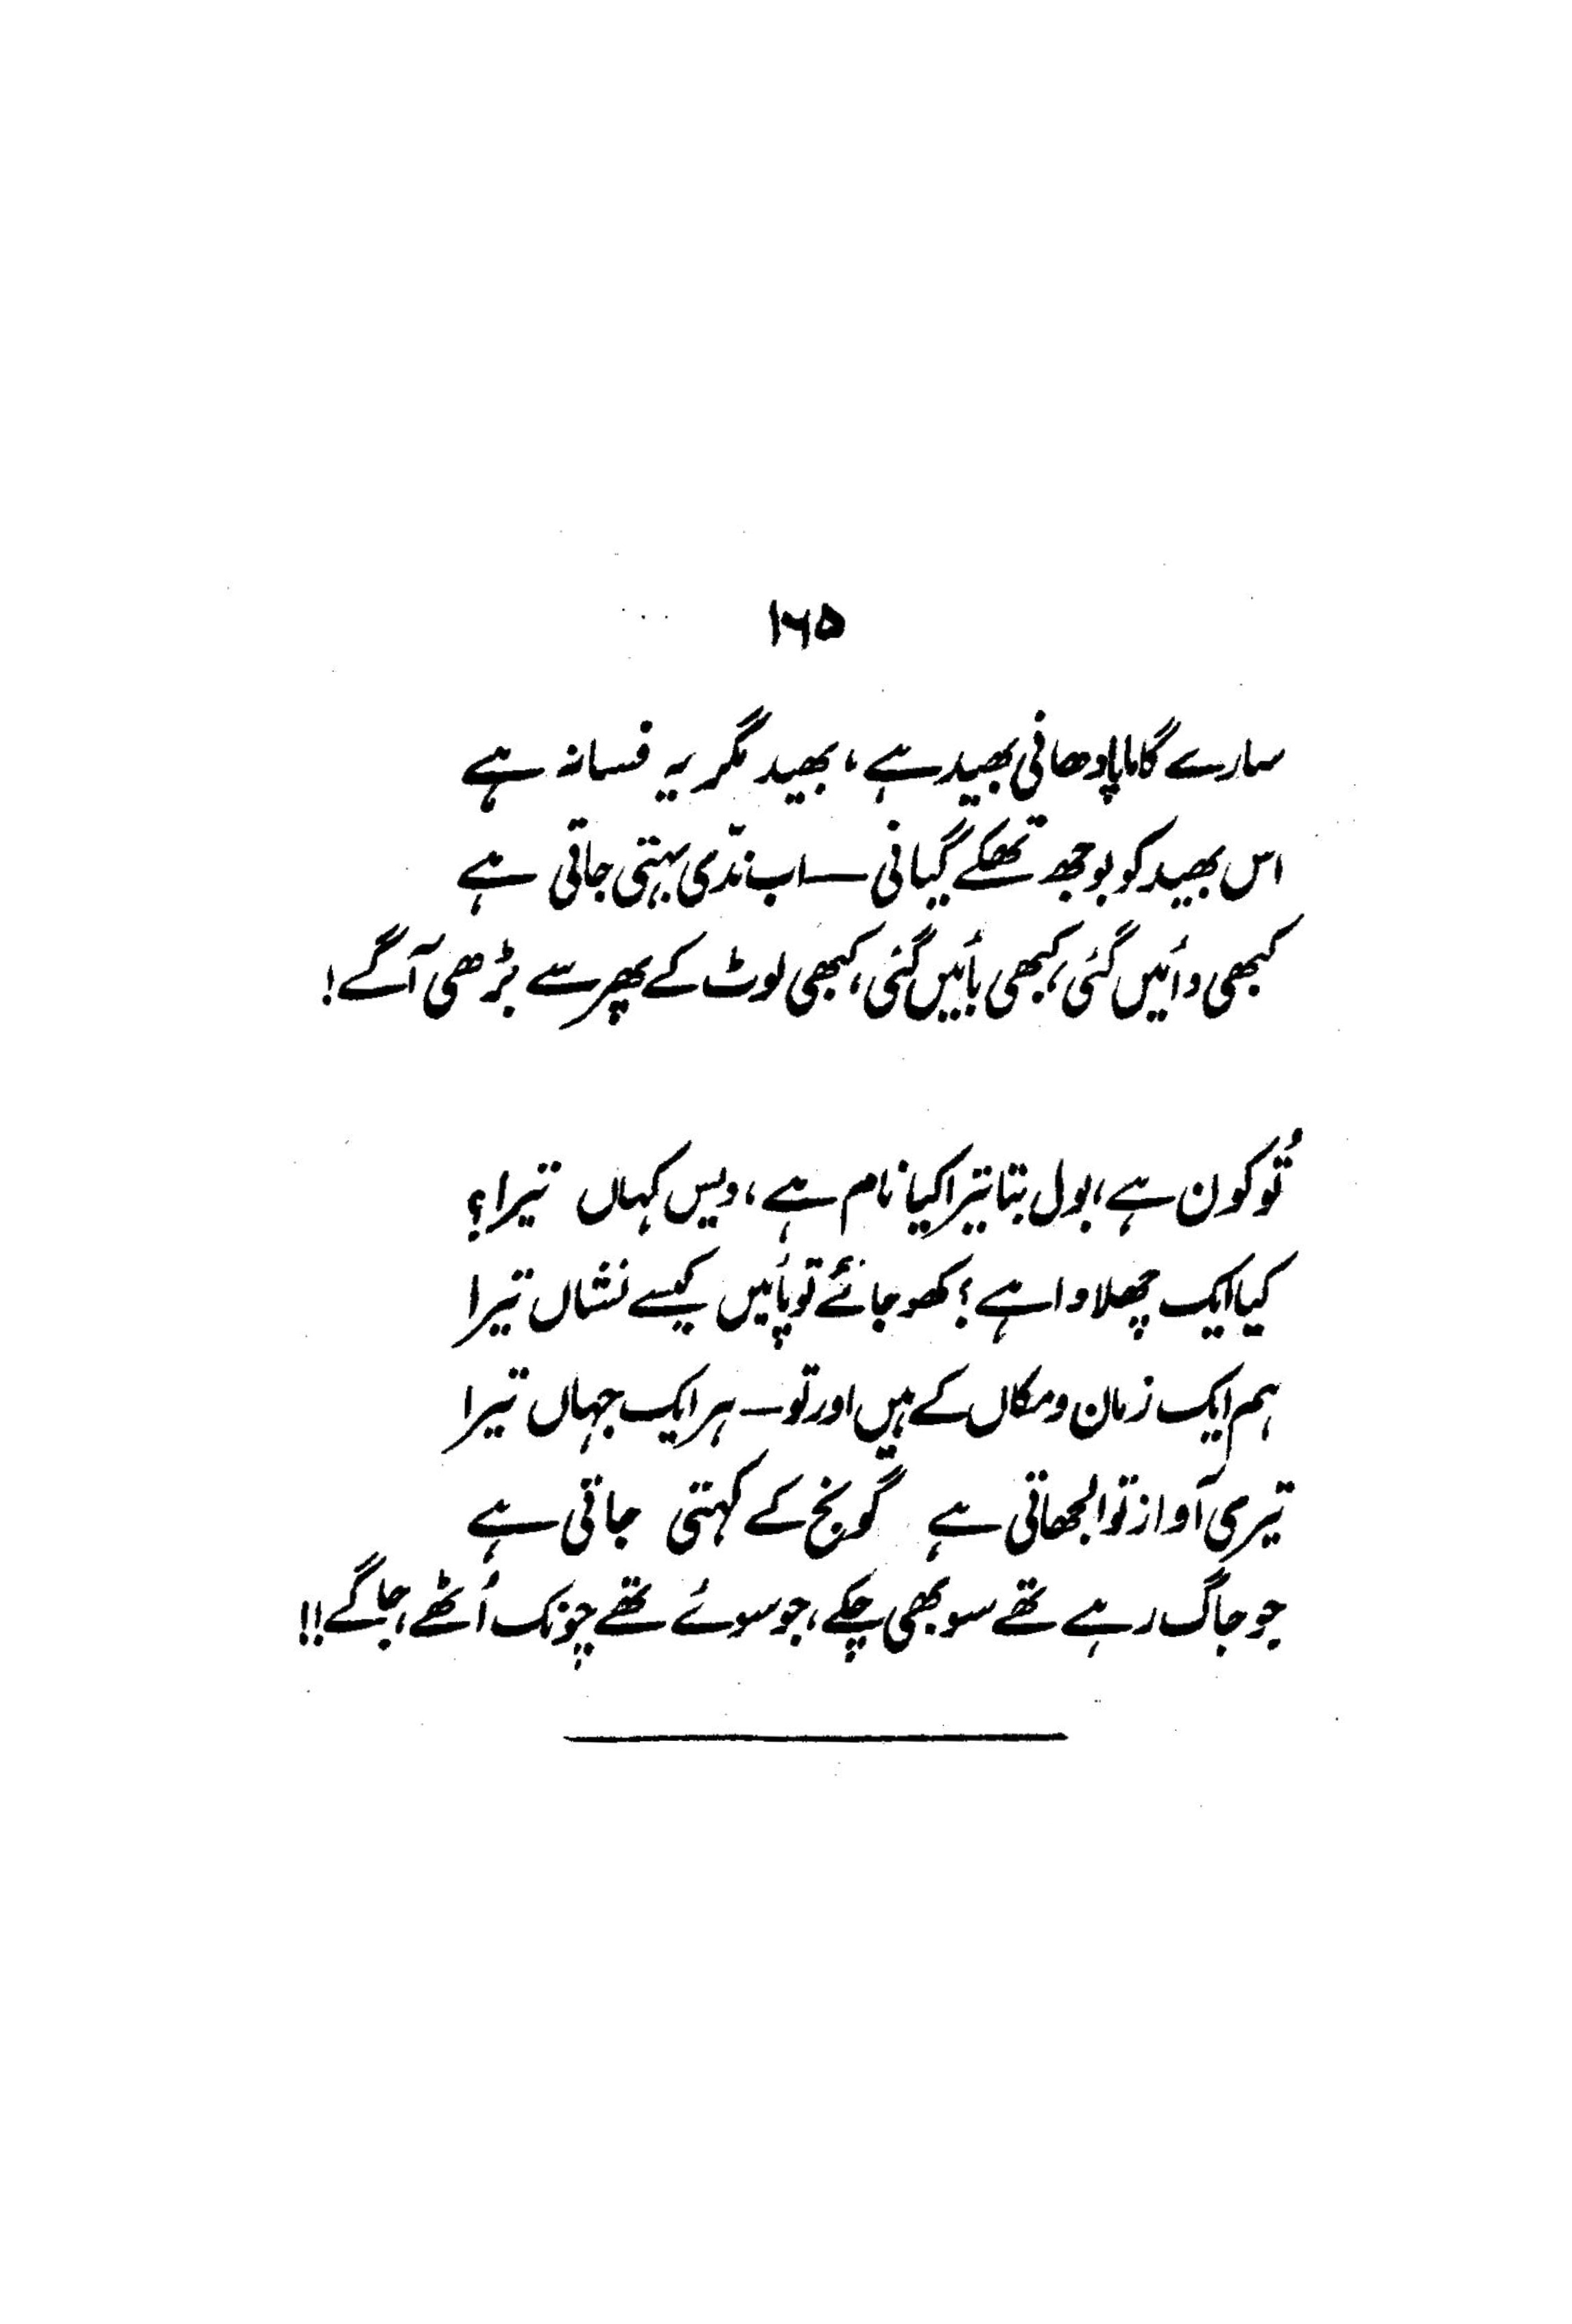 ۱۶۵
سارے گاما پادھانی بھید ہے، بھید مگر یہ فسانہ ہے
اس بھید کو بوجھ تھکے گیانی ــ اب ندّی بہتی جاتی ہے
کبھی دائیں گئی، کبھی بائیں گئی، کبھی لوٹ کے پھر سے بڑھی آگے!
تُو کون ہے، بول بتا تیرا کیا نام ہے، دیس کہاں تیرا؟
کیا ایک چھلاوا ہے؟ کھو جائے تو پائیں کیسے نشاں تیرا
ہم ایک زمان و مکاں کے ہیں اور تو ــ ہر ایک جہاں تیرا
تیری آواز تو الجھاتی ہے گونج کے کہتی جاتی ہے
جو جاگ رہے تھے سو بھی چکے، جو سوئے تھے چونک اُٹھے، جاگے!!